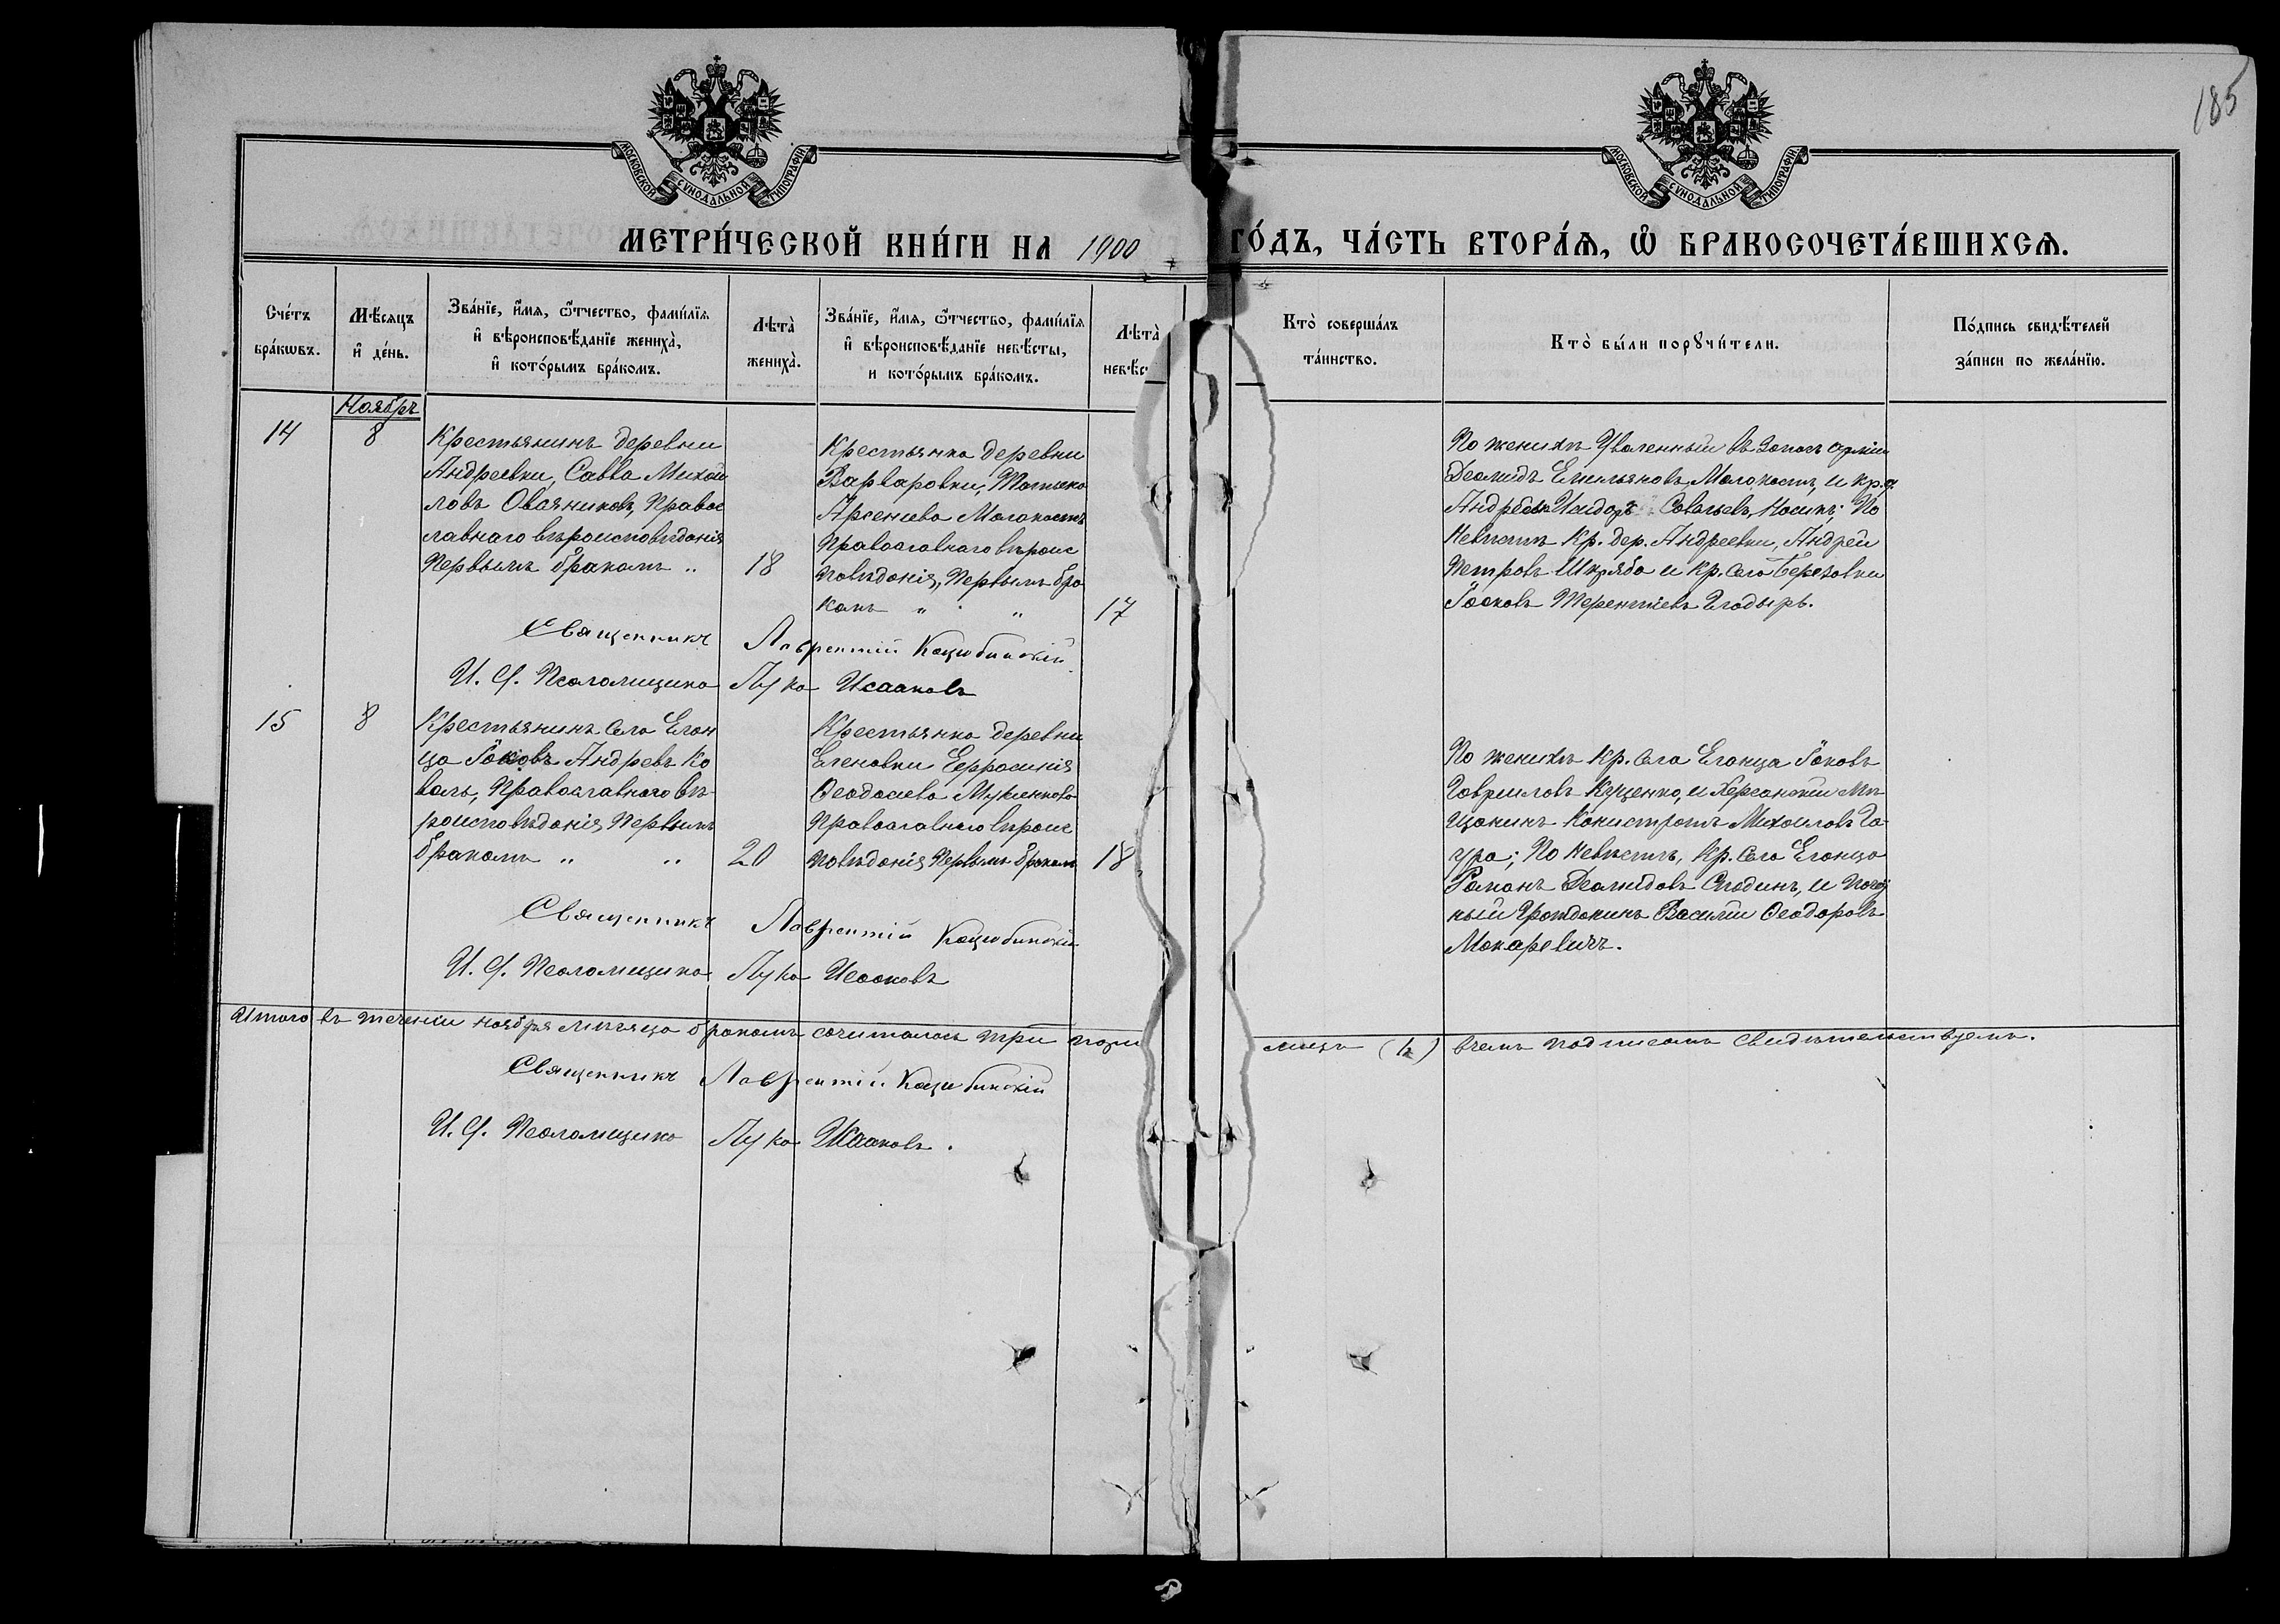 185
МОСКОВСКОЙ СѴНОДАЛЬНОЙ ТИПОГРАФІИ
МОСКОВСКОЙ СѴНОДАЛЬНОЙ ТИПОГРАФІИ
МЕТРИ́ЧЕСКОЙ КНИ́ГИ НА 1900 ГО́ДЪ, ЧА́СТЬ ВТОРА́Ѧ, Ѽ БРАКОСОЧЕТА́ВШИХСѦ.
Сче́тъ
бра́кѡвъ.
Мѣ́сяцъ
и҆ де́нь.
Зва́нїе, и҆́мя, ѻ҆́тчество, фами́лїя
и҆ вѣроисповѣ́данїе жениха̀,
и҆ кото́рымъ бра́комъ.
Лѣта̀
жениха̀.
Зва́нїе, и҆́мя, ѻ҆́тчество, фами́лїя
и҆ вѣроисповѣ́данїе невѣ́сты,
и кото́рымъ бра́комъ.
Лѣта̀
невѣ́с
Кто̀ соверша́лъ
та́инство.
Кто̀ бы́ли порꙋчи́тели.
По́дпись свидѣ́телей
за́писи по жела́нїю.
Ноябрь
14
8
Крестьянинъ деревни
Андреевки, Савва Михай
ловъ Овсяниковъ, Правос
лавнаго вѣроисповѣданія
Первымъ бракомъ „
18
Крестьянка деревни
Варваровки,
Арсеніева Молокостъ
Православнаго вѣроис
повѣданія, Первымъ бра
комъ „ „
17
По женихѣ Уволенный въ запасъ арміи
Діомидъ Емельяновъ Молокостъ, и кр. д.
Андреевки Исидоръ Савельевъ Носикъ; По
Невѣстѣ Кр. дер. Андреевки, Андрей
Петровъ Шкряба и кр. села Березовки
Іаковъ Терентіевъ
Священникъ Лаврентій Коцюбинскій
И. д. Псаломщика Лука Исааковъ
15
8
Крестьянинъ села Еган
ца Іаковъ Андреевъ Ко
валь, Православнаго вѣ
роисповѣданія, Первымъ
бракомъ „ „
20
Крестьянка деревни
Еленовки Евфросинія
Ѳеодосіева
Православнаго вѣроис
повѣданія Первымъ бракомъ
18
По женихѣ Кр. села Еганца Іаковъ
Гавриловъ Куценко, и Херсонскій Мѣ
щанинъ Михаиловъ Га
ура; По Невѣстѣ, Кр. села Еганца
Романъ Діомидовъ и почет
ный Гражданинъ Василій Ѳеодоровъ
Макаревичъ.
Священникъ Лаврентій Коцюбинскій
И. д. Псаломщика Лука Исааковъ
Итого въ теченіи ноября мѣсяца бракомъ сочиталось три въ чемъ подписомъ свидѣтельствуемъ.
Священникъ Лаврентій Коцюбинскій
И. д. Псаломщика Лука Исааковъ.